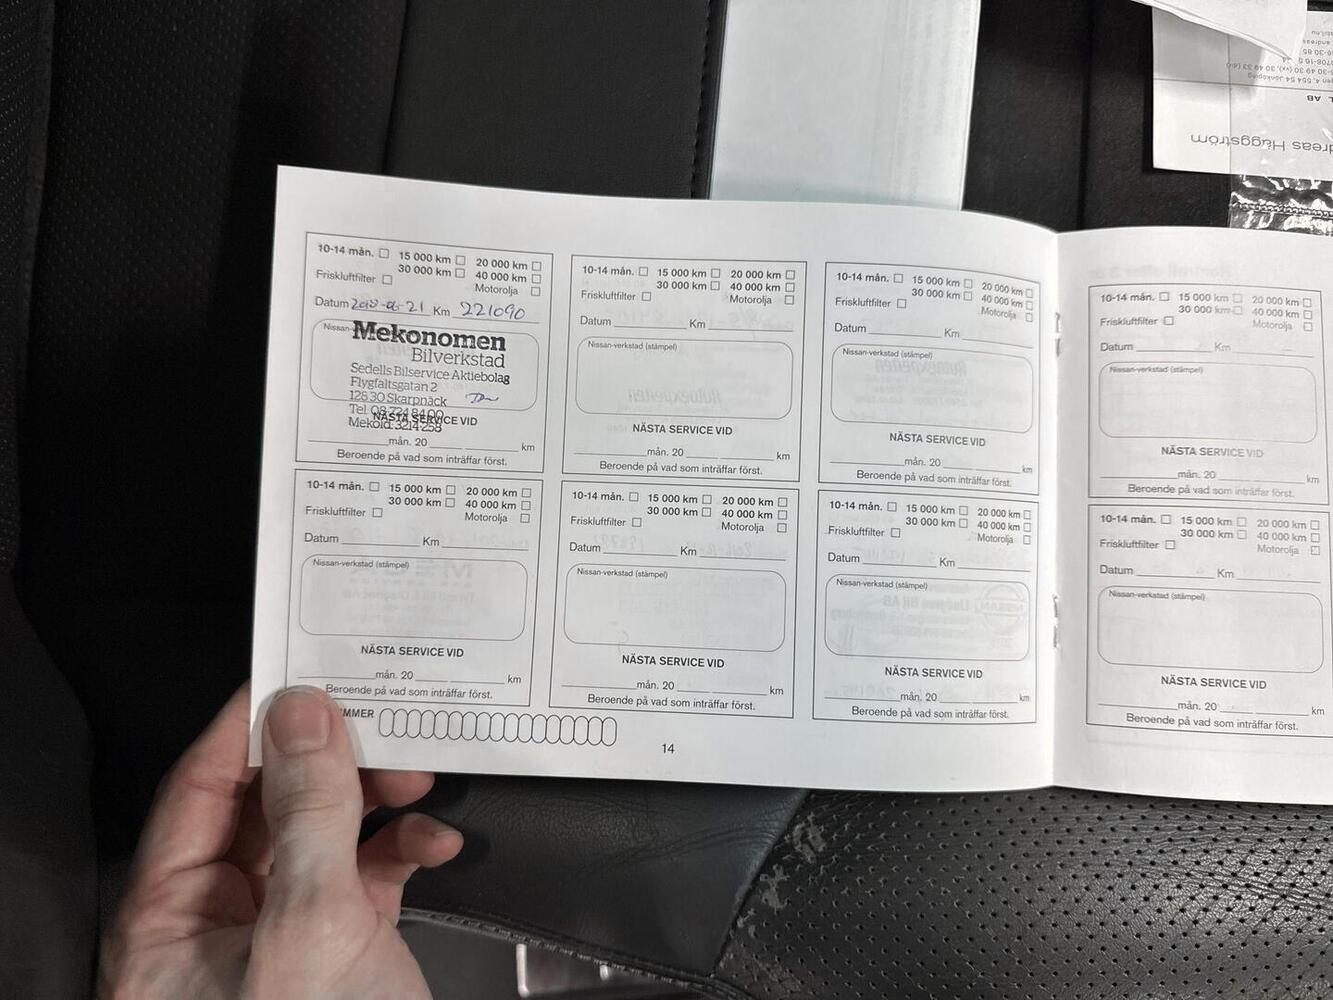 10-14 mån. 15 000 km 20 000 km
30 000 km 40 000 km
Friskluftfilter Motorolja
Datum 2018-06-21 Km 221090
Nissan-
Mekonomen
Bilverkstad
Sedells Bilservice Aktiebolag
Flygfältsgatan 2
128 30 Skarpnäck
Tel. 08-724 84 00
NÄSTA SERVICE VID
Mekoid: 3214253
mån. 20 km
Beroende på vad som inträffar först.
10-14 mån. 15 000 km 20 000 km
30 000 km 40 000 km
Friskluftfilter Motorolja
Datum Km
Nissan-verkstad (stämpel)
NÄSTA SERVICE VID
mån. 20 km
Beroende på vad som inträffar först.
10-14 mån. 15 000 km 20 000 km
30 000 km 40 000 km
Friskluftfilter Motorolja
Datum Km
Nissan-verkstad (stämpel)
NÄSTA SERVICE VID
mån. 20 km
Beroende på vad som inträffar först.
10-14 mån. 15 000 km 20 000 km
30 000 km 40 000 km
Friskluftfilter Motorolja
Datum Km
Nissan-verkstad (stämpel)
NÄSTA SERVICE VID
mån. 20 km
Beroende på vad som inträffar först.
10-14 mån. 15 000 km 20 000 km
30 000 km 40 000 km
Friskluftfilter Motorolja
Datum Km
Nissan-verkstad (stämpel)
NÄSTA SERVICE VID
mån. 20 km
Beroende på vad som inträffar först.
10-14 mån. 15 000 km 20 000 km
30 000 km 40 000 km
Friskluftfilter Motorolja
Datum Km
Nissan-verkstad (stämpel)
NÄSTA SERVICE VID
mån. 20 km
Beroende på vad som inträffar först.
10-14 mån. 15 000 km 20 000 km
30 000 km 40 000 km
Friskluftfilter Motorolja
Datum Km
Nissan-verkstad (stämpel)
NÄSTA SERVICE VID
mån. 20 km
Beroende på vad som inträffar först.
10-14 mån. 15 000 km 20 000 km
30 000 km 40 000 km
Friskluftfilter Motorolja
Datum Km
Nissan-verkstad (stämpel)
NÄSTA SERVICE VID
mån. 20 km
Beroende på vad som inträffar först.
MMER
14
dreas Häggström
AB
554 54 Jönköping